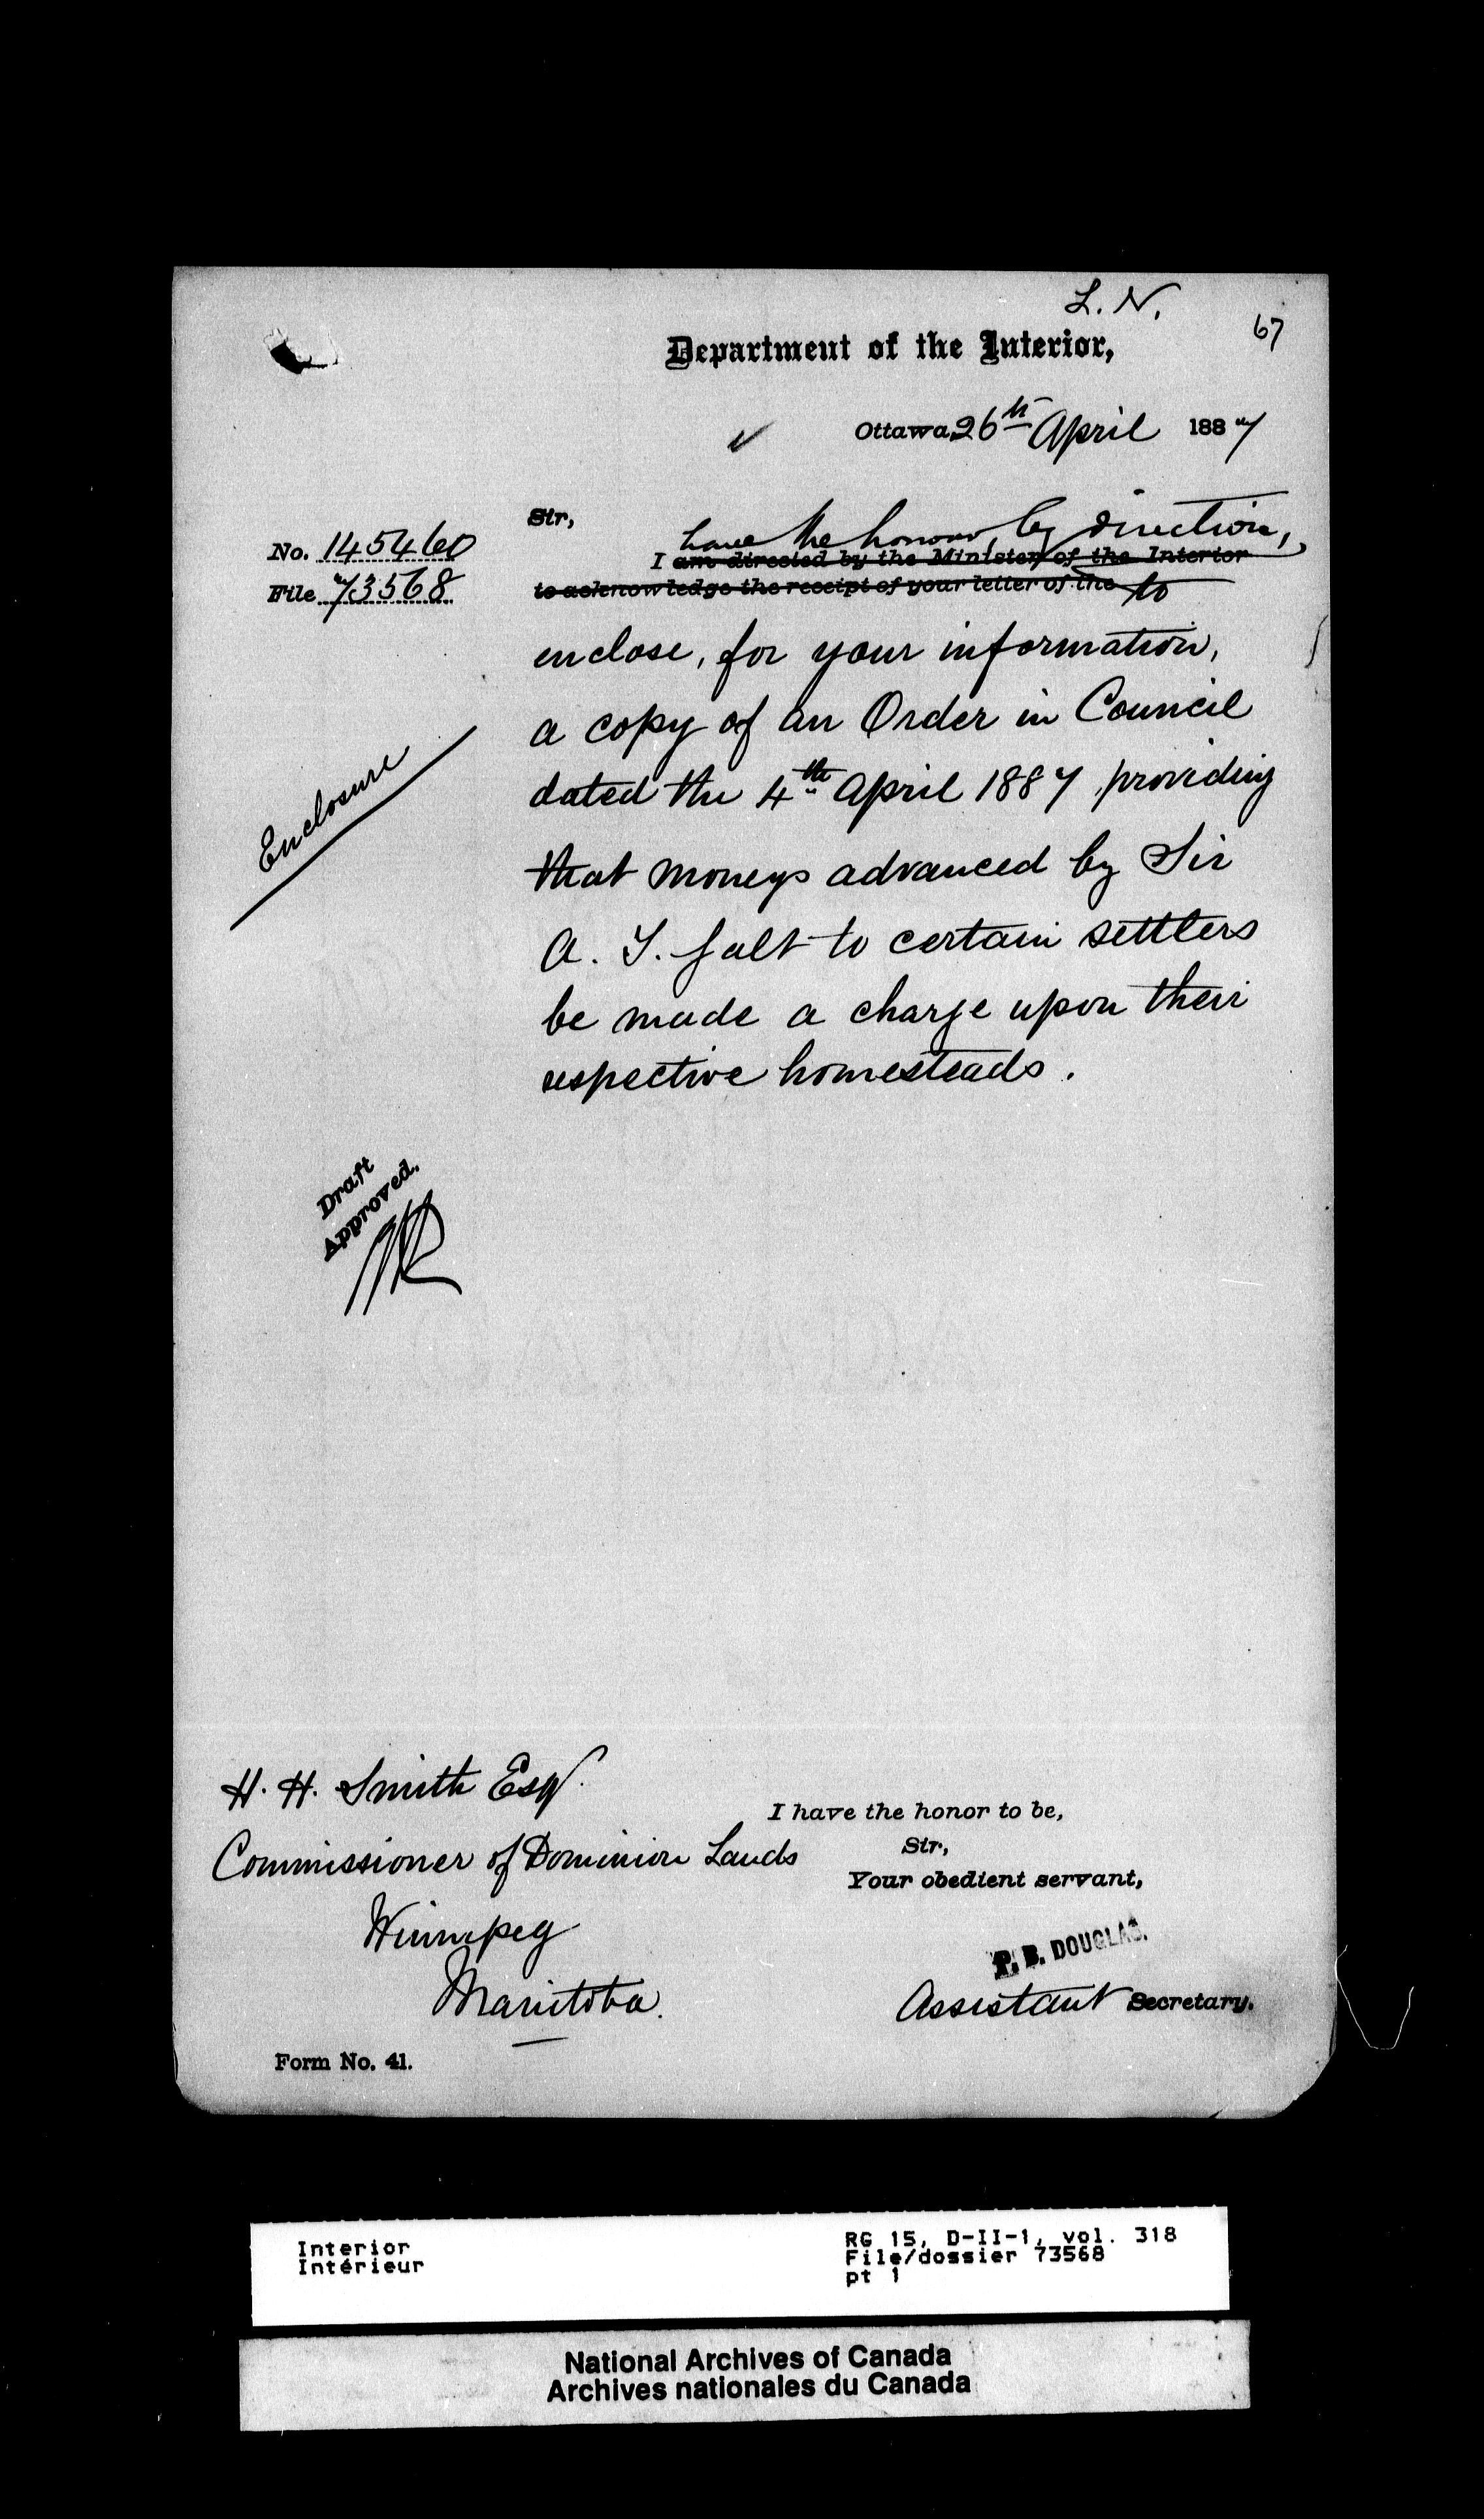 L. N.
67
Department of the Interior,
Ottawa, 26th April 1887
Sir,
have the honour, by direction,
No. 145460
I am directed by the Minister of the Interior
File 73568
to acknowledge the receipt of your letter of the to
enclose, for your information,
a copy of an Order in Council
dated the 4th April 1887, providing
Enclosure
that moneys advanced by Sir
A. T. Galt to certain settlers
be made a charge upon their
respective homesteads.
Draft
Approved.
H. H. Smith Esqr.
I have the honor to be,
Commissioner of Dominion Lands
Sir,
Your obedient servant,
Winnipeg
P. B. DOUGLAS.
Manitoba.
Assistant Secretary.
Form No. 41.
Interior
Intérieur
RG 15, D-II-1, vol. 318
File/dossier 73568
pt 1
National Archives of Canada
Archives nationales du Canada